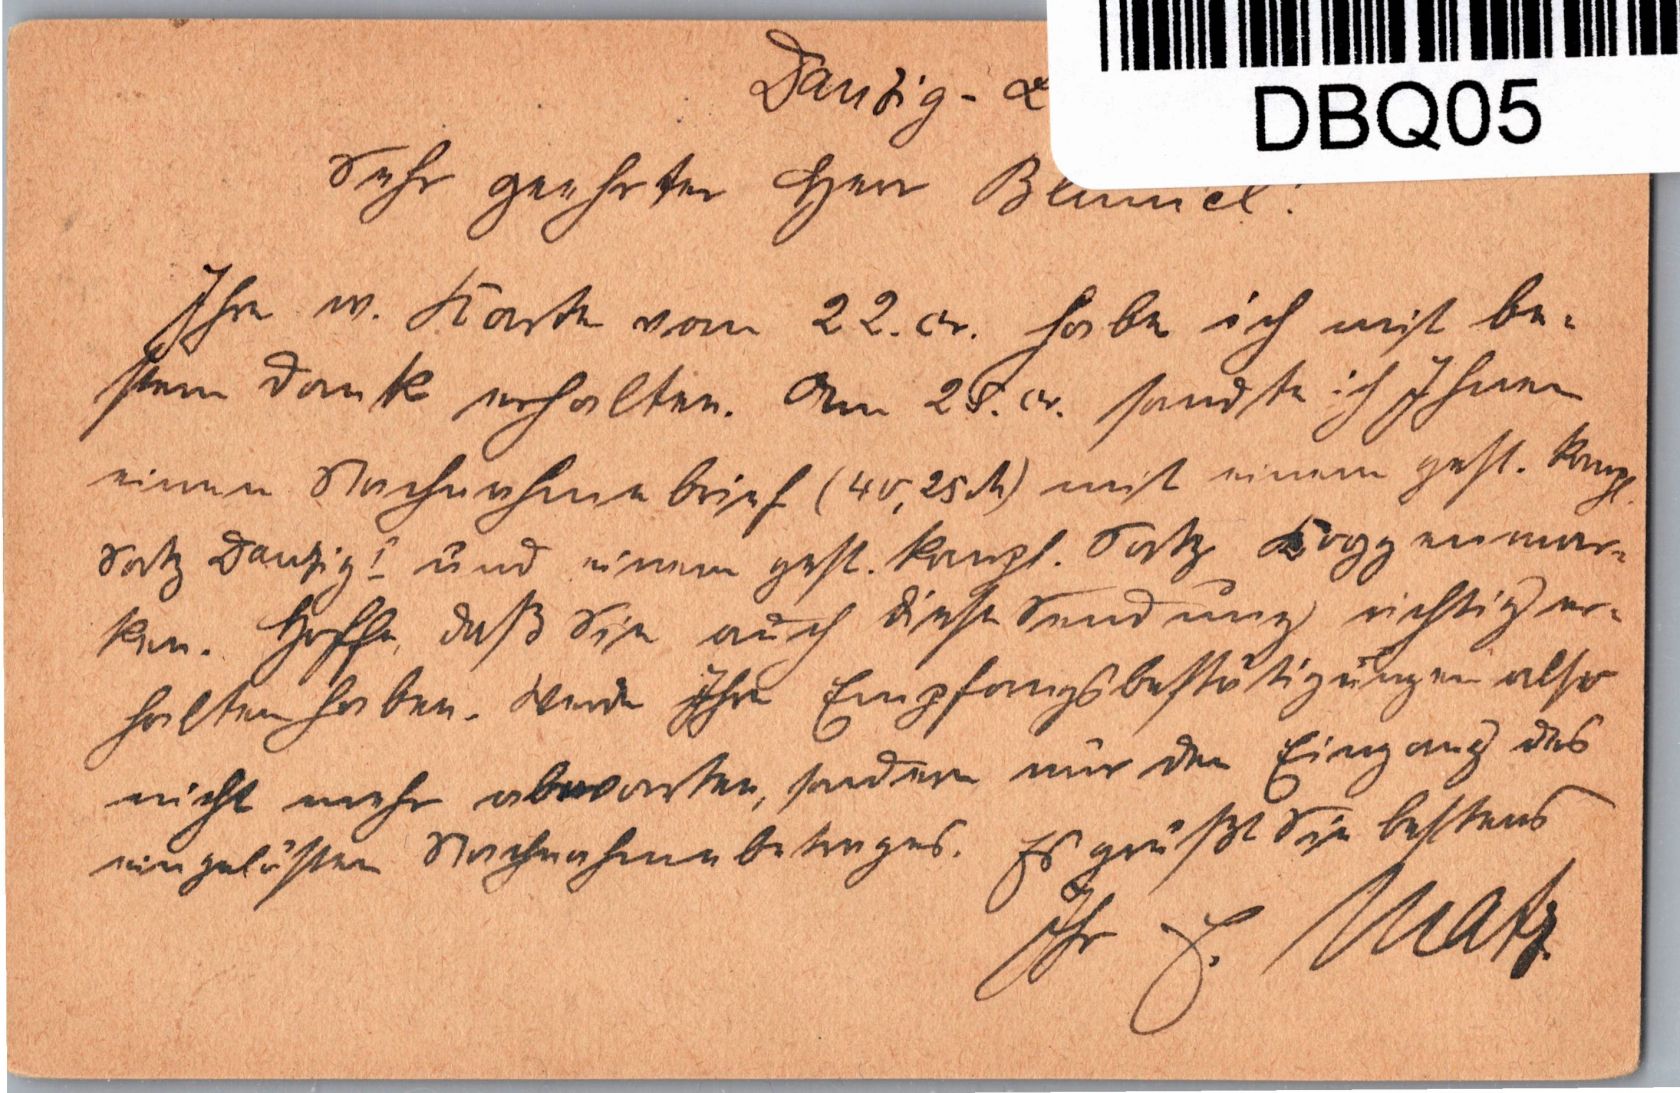 DBQ05
Danzig - L
Sehr geehrter Herr Blümel!
Ihre w. Karte vom 22. cr. habe ich mit be-
stem Dank erhalten. Am 28. cr. sandte ich Ihnen
einen Nachnahmebrief (40,25 M) mit einem gest. kompl.
Satz Danzig I und einem gest. kompl. Satz Koggenmar-
ken. Hoffe, daß Sie auch diese Sendung richtig er-
halten haben. Werde Ihre Empfangsbestätigungen also
nicht mehr abwarten, sondern nur den Eingang des
eingelösten Nachnahmebetrages. Es grüßt Sie bestens
Ihr E. Matz